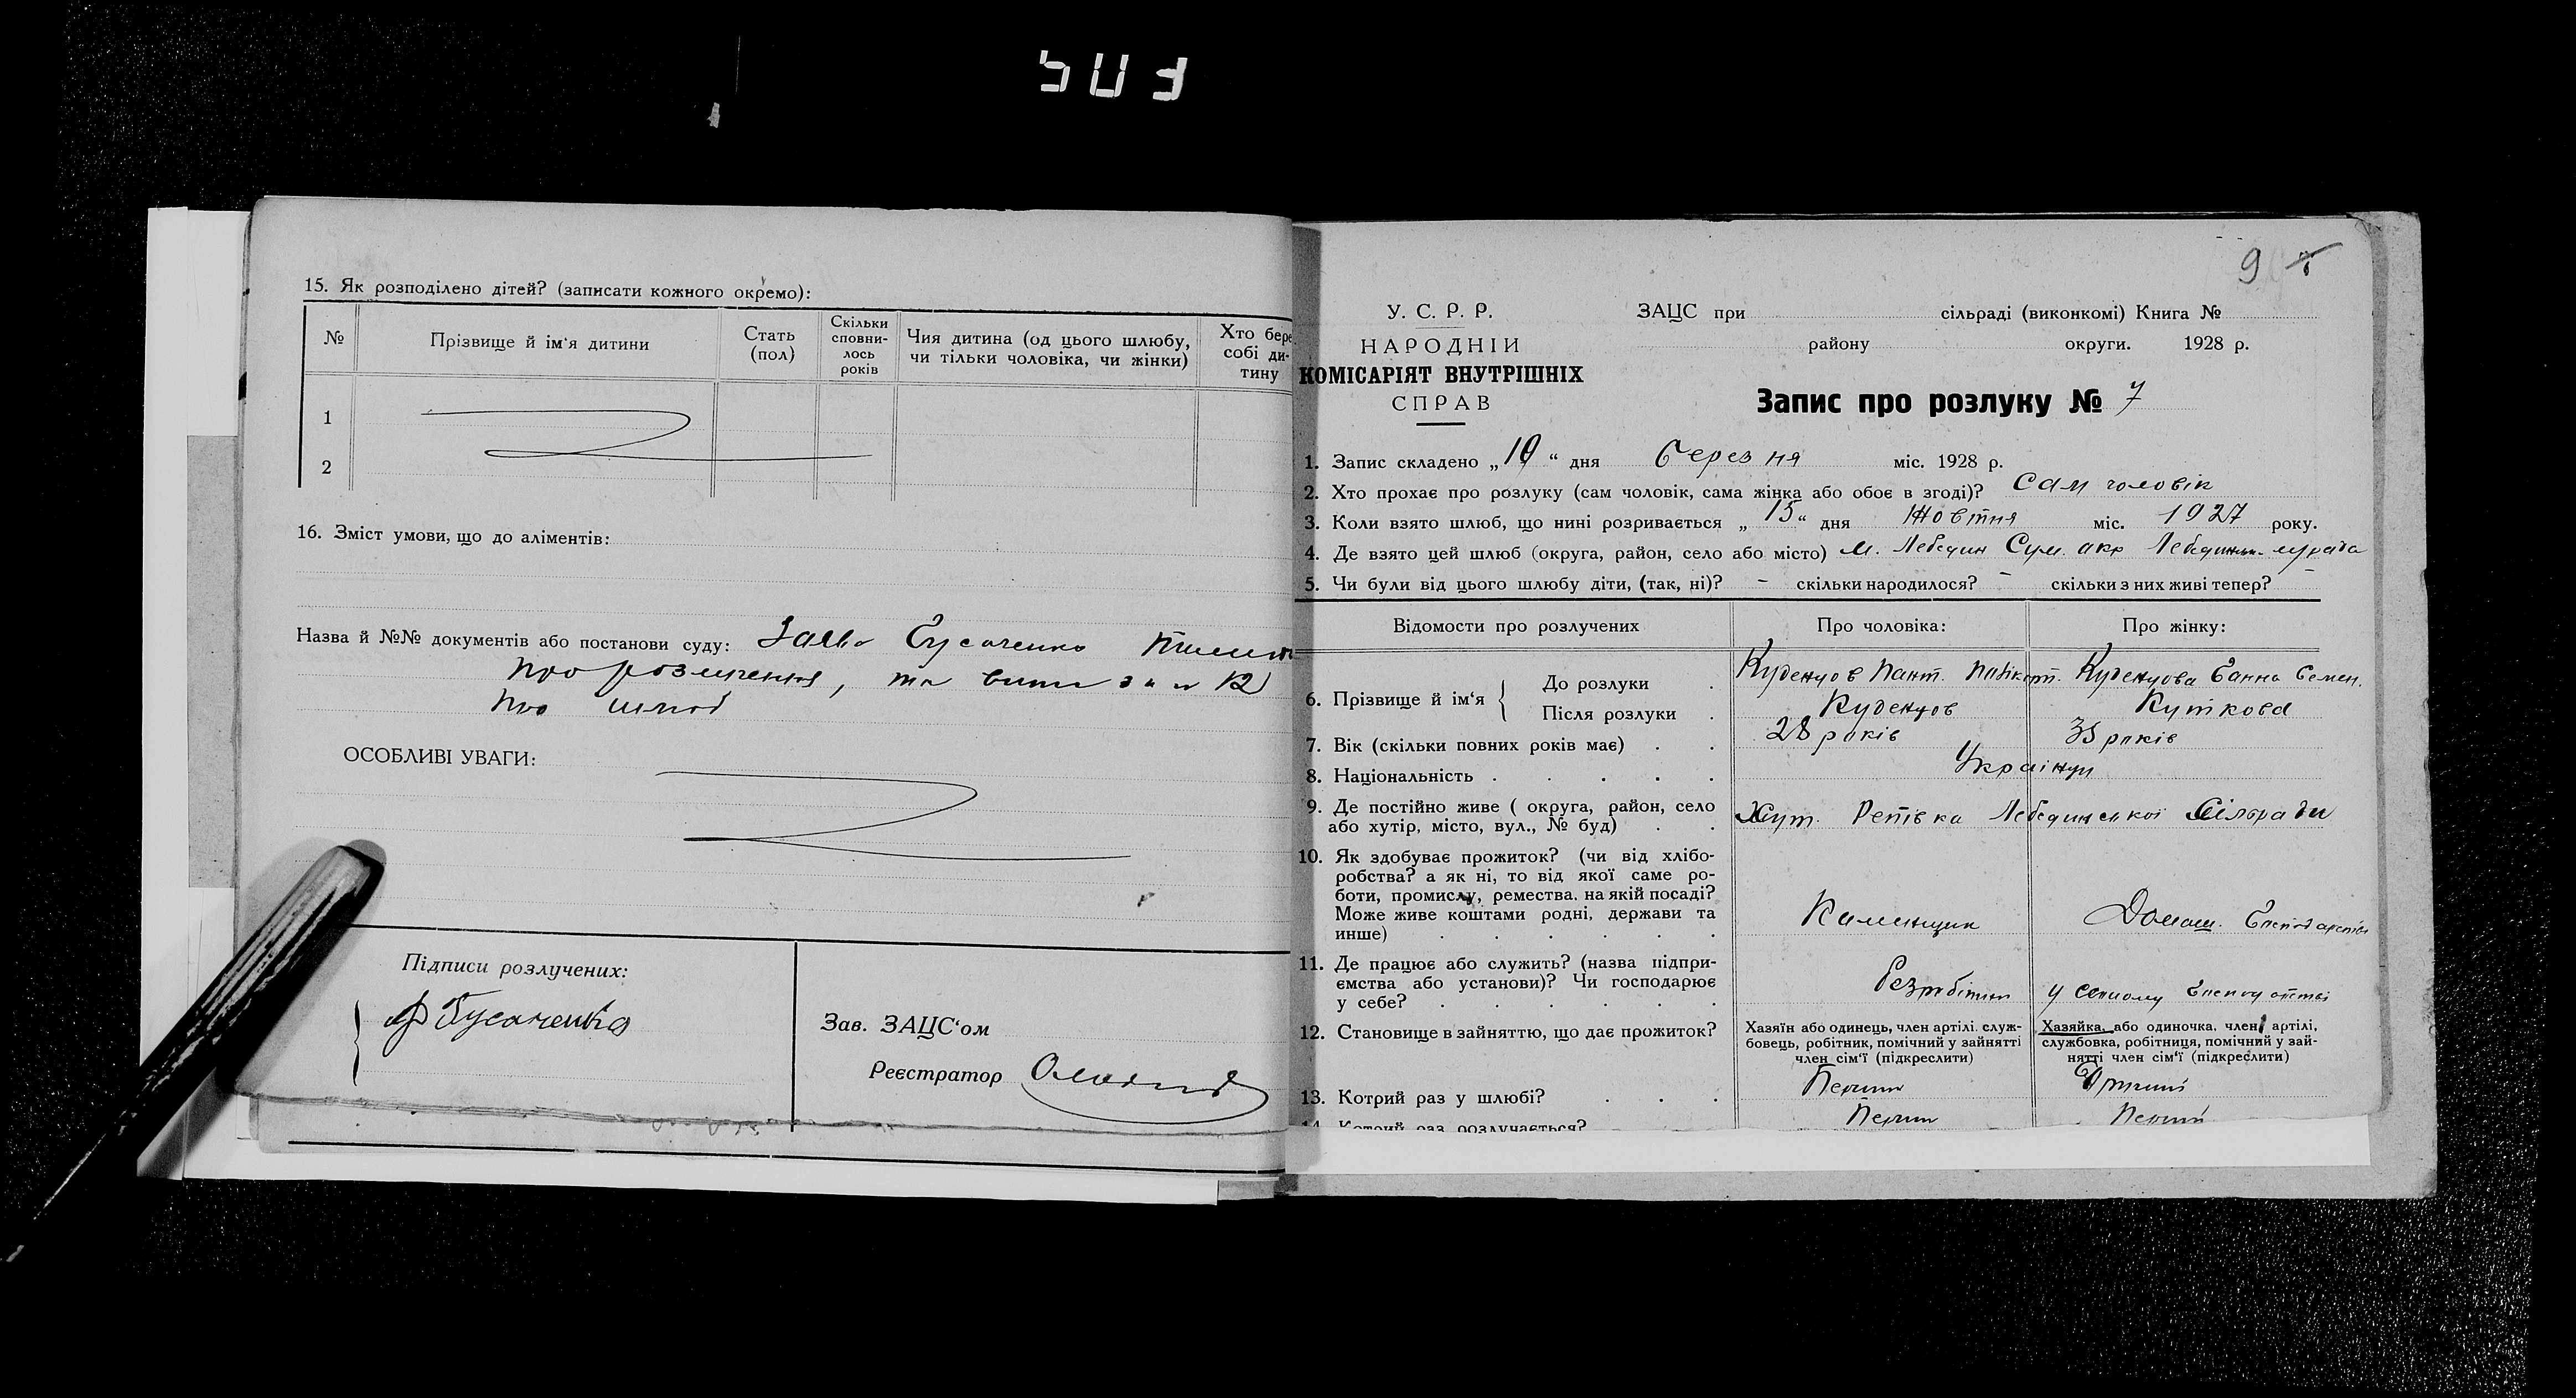 15. Як розподілено дітей? (записати кожного окремо):
№ Прізвище й ім'я дитини Стать (пол) Скільки сповнилось років Чия дитина (од цього шлюбу, чи тільки чоловіка, чи жінки) Хто бере собі дитину
1
2
16. Зміст умови, що до аліментів:
Назва й №№ документів або постанови суду: Заява Гусаченко
про розлучення, та
про шлюб
ОСОБЛИВІ УВАГИ:
Підписи розлучених:
Гусаченко
Зав. ЗАЦС'ом
Реєстратор
9
У. С. Р. Р.
НАРОДНІЙ
КОМІСАРІЯТ ВНУТРІШНІХ
СПРАВ
ЗАЦС при сільраді (виконкомі) Книга №
району округи. 1928 р.
Запис про розлуку № 7
1. Запис складено „10“ дня Березня міс. 1928 р.
2. Хто прохає про розлуку (сам чоловік, сама жінка або обоє в згоді)? Сам чоловік
3. Коли взято шлюб, що нині розривається „15“ дня Жовтня міс. 1927 року.
4. Де взято цей шлюб (округа, район, село або місто) м. Лебедин Сум. окр
5. Чи були від цього шлюбу діти, (так, ні)? – скільки народилося? – скільки з них живі тепер? –
Відомости про розлучених Про чоловіка: Про жінку:
6. Прізвище й ім'я
До розлуки Куденцов Пант. Куденцова Ганна Семен.
Після розлуки Куденцов Куткова
7. Вік (скільки повних років має) 28 років 35 років
8. Національність Українці
9. Де постійно живе ( округа, район, село
або хутір, місто, вул., № буд) Хут. Репівка Лебединської Сільради
10. Як здобуває прожиток? (чи від хлібо-
робства? а як ні, то від якої саме ро-
боти, промислу, ремества. на якій посаді?
Може живе коштами родні, держави та
инше) Каменщик Домаш. Господарстві
11. Де працює або служить? (назва підпри-
ємства або установи)? Чи господарює
у себе? Безробітний у
12. Становище в зайняттю, що дає прожиток?
Хазяїн або одинець, член артілі. служ-
бовець, робітник, помічний у зайнятті
член сім'ї (підкреслити)
Хазяйка, або одиночка, член артілі,
службовка, робітниця, помічний у зай-
нятті член сім'ї (підкреслити)
13. Котрий раз у шлюбі? Перший Другий
14. Котрий раз розлучається? Перший Перший